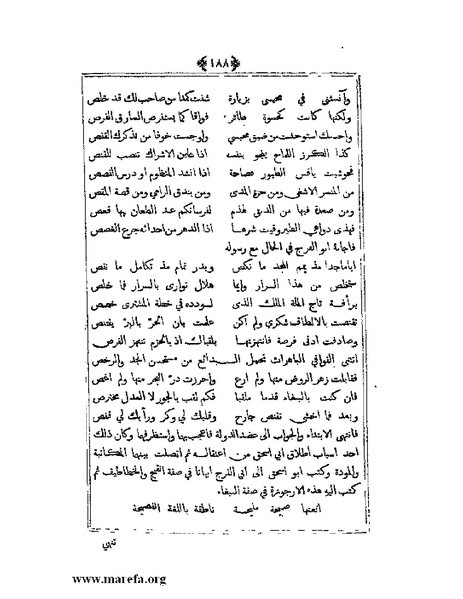 ﴿١٨٨﴾
وآنستني في محبسي بزيارة شفت كمدا من صاحب لك قد خلص
ولكنها كانت كحسوة طائر فواقا كما يستفرص السارق الفرص
واحسبك استوحشت من ضيق محبسي واوجست خوفا من تذكرك القفص
كذا الكرز اللماح ينجو بنفسه اذا عاين الاشراك تنصب للقنص
فحوشيت ياقس الطيور فصاحة اذا انشد المنظوم او درس القصص
من المنسر الاشغى ومن حزة المدى ومن بندق الرامي ومن قصة المقص
ومن صعدة فيها من الدبق لهذم لفرسانكم عند الطعان بها قعص
فهذي دواهي الطير وقيت شرها اذا الدهر من احداثه جرع الغصص
فاجابه ابو الفرج في الحال مع رسوله
اياماجدا مذ يمم المجد ما نكص وبدر تمام مذ تكامل ما نقص
ستخلص من هذا السرار وايما هلال توارى بالسرار فما خلص
برأفة تاج الملة الملك الذي لسودده في خطة المشتري خصص
تقنصت بالالطاف شكري ولم اكن علمت بان الحرّ بالبرّ يقتنص
وصادفت ادنى فرصة فانتهزتها بلقياك اذ بالحزم تنتهز الفرص
اتتني القوافي الباهرات تحمل البدائع من مستحسن الجد والرخص
فقابلت زهر الروض منها ولم ارع واحرزت درّ البحر منها ولم اغص
فان كنت بالببغاء قدما ملقبا فكم لقب بالجور لا العدل مخترص
وبعد فما اخشى تقنص جارح وقلبك لي وكر ورأيك لي قفص
فانتهى الابتداء والجواب الى عضد الدولة فاعجب بها واستظرفها وكان ذلك
احد اسباب اطلاق ابي اسحق من اعتقاله ثم اتصلت بينها المكاتبة
والمودة وكتب ابو اسحق الى ابي الفرج ابياتا في صفة القبج والخطاطيف ثم
كتب اليه هذه الارجوزة في صفة الببغاء
انعتها صبيحة مليحة ناطقة باللغة الفصيحة
www.marefa.org